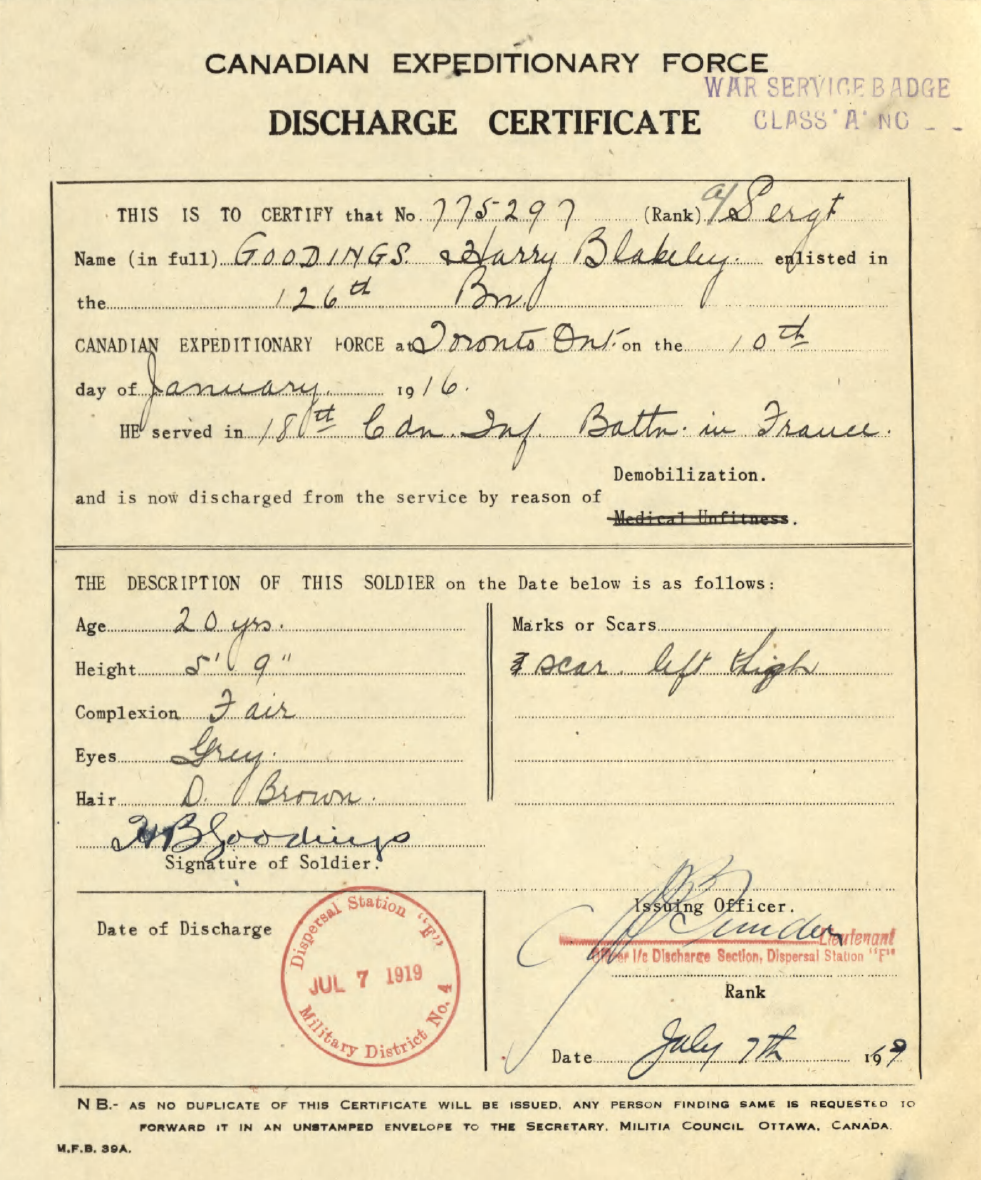 CANADIAN EXPEDITIONARY FORCE
WAR SERVICE BADGE
CLASS "A" NO - -
DISCHARGE CERTIFICATE
THIS IS TO CERTIFY that No. 775297 (Rank) a/ Sergt
Name (in full) GOODINGS. Harry Blakeley. enlisted in
the 126th Bn.
CANADIAN EXPEDITIONARY FORCE at Toronto Ont. on the 10th
day of January. 1916.
HE served in 18th Cdn. Inf. Battn. in France.
Demobilization.
and is now discharged from the service by reason of
Medical Unfitness.
THE DESCRIPTION OF THIS SOLDIER on the Date below is as follows:
Age 20 yrs.
Height 5' 9"
Complexion Fair
Eyes Grey.
Hair D. Brown.
Marks or Scars
scar left thigh
H B Goodings
Signature of Soldier.
Date of Discharge
Dispersal Station "F"
JUL 7 1919
Military District No. 4
Issuing Officer.
Lieutenant
Officer I/c Discharge Section, Dispersal Station "F"
Rank
Date July 7th 1919
N B.- AS NO DUPLICATE OF THIS CERTIFICATE WILL BE ISSUED, ANY PERSON FINDING SAME IS REQUESTED TO
FORWARD IT IN AN UNSTAMPED ENVELOPE TO THE SECRETARY, MILITIA COUNCIL OTTAWA, CANADA.
M.F.B. 39A.